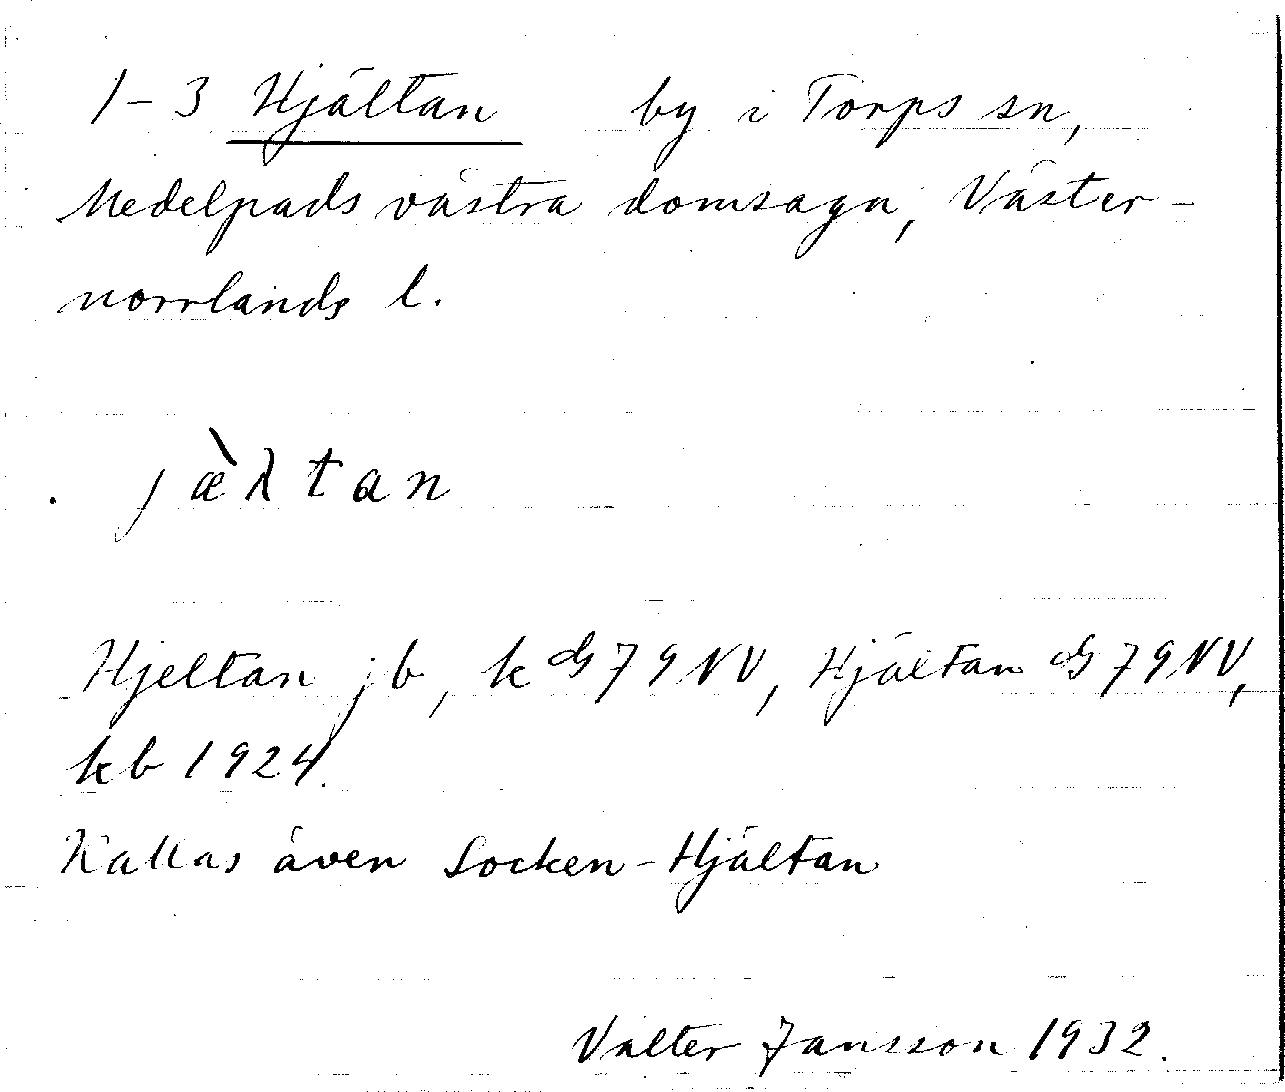 1-3 Hjältan by i Torps sn,
Medelpads västra domsaga, Väster-
norrlands l.
jæ̀λtan
Hjeltan jb, k GS 79 NV, Hjältan GS 79 NV,
kb 1924.
Kallas även Socken-Hjältan
Valter Jansson 1932.